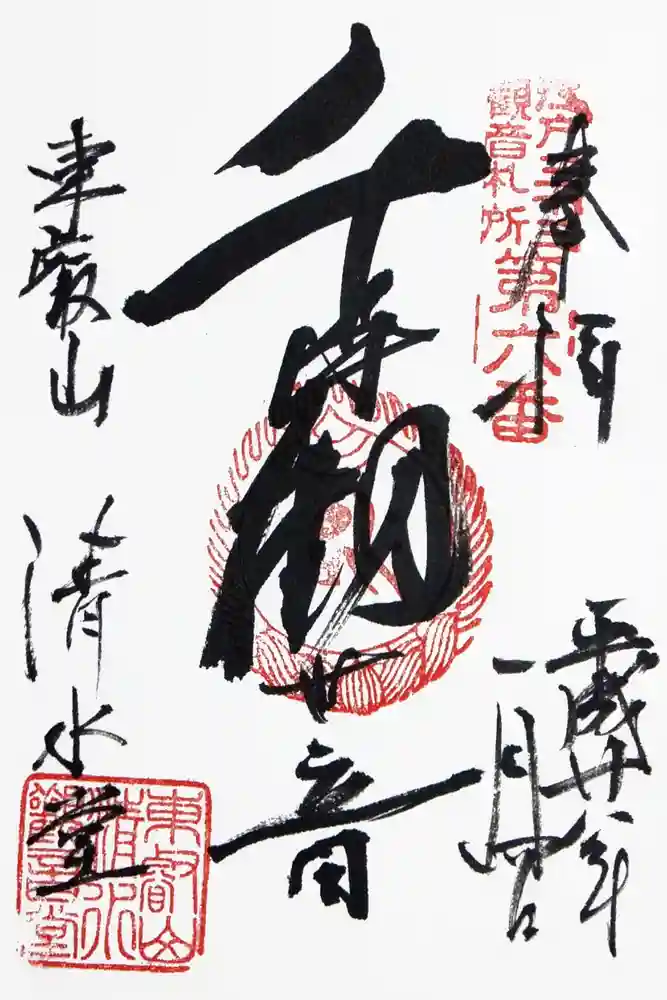 奉拝
江戸三十三
観音札所第六番
平成
一月
千手観世音
東叡山 清水堂
東叡山
清水
觀音堂